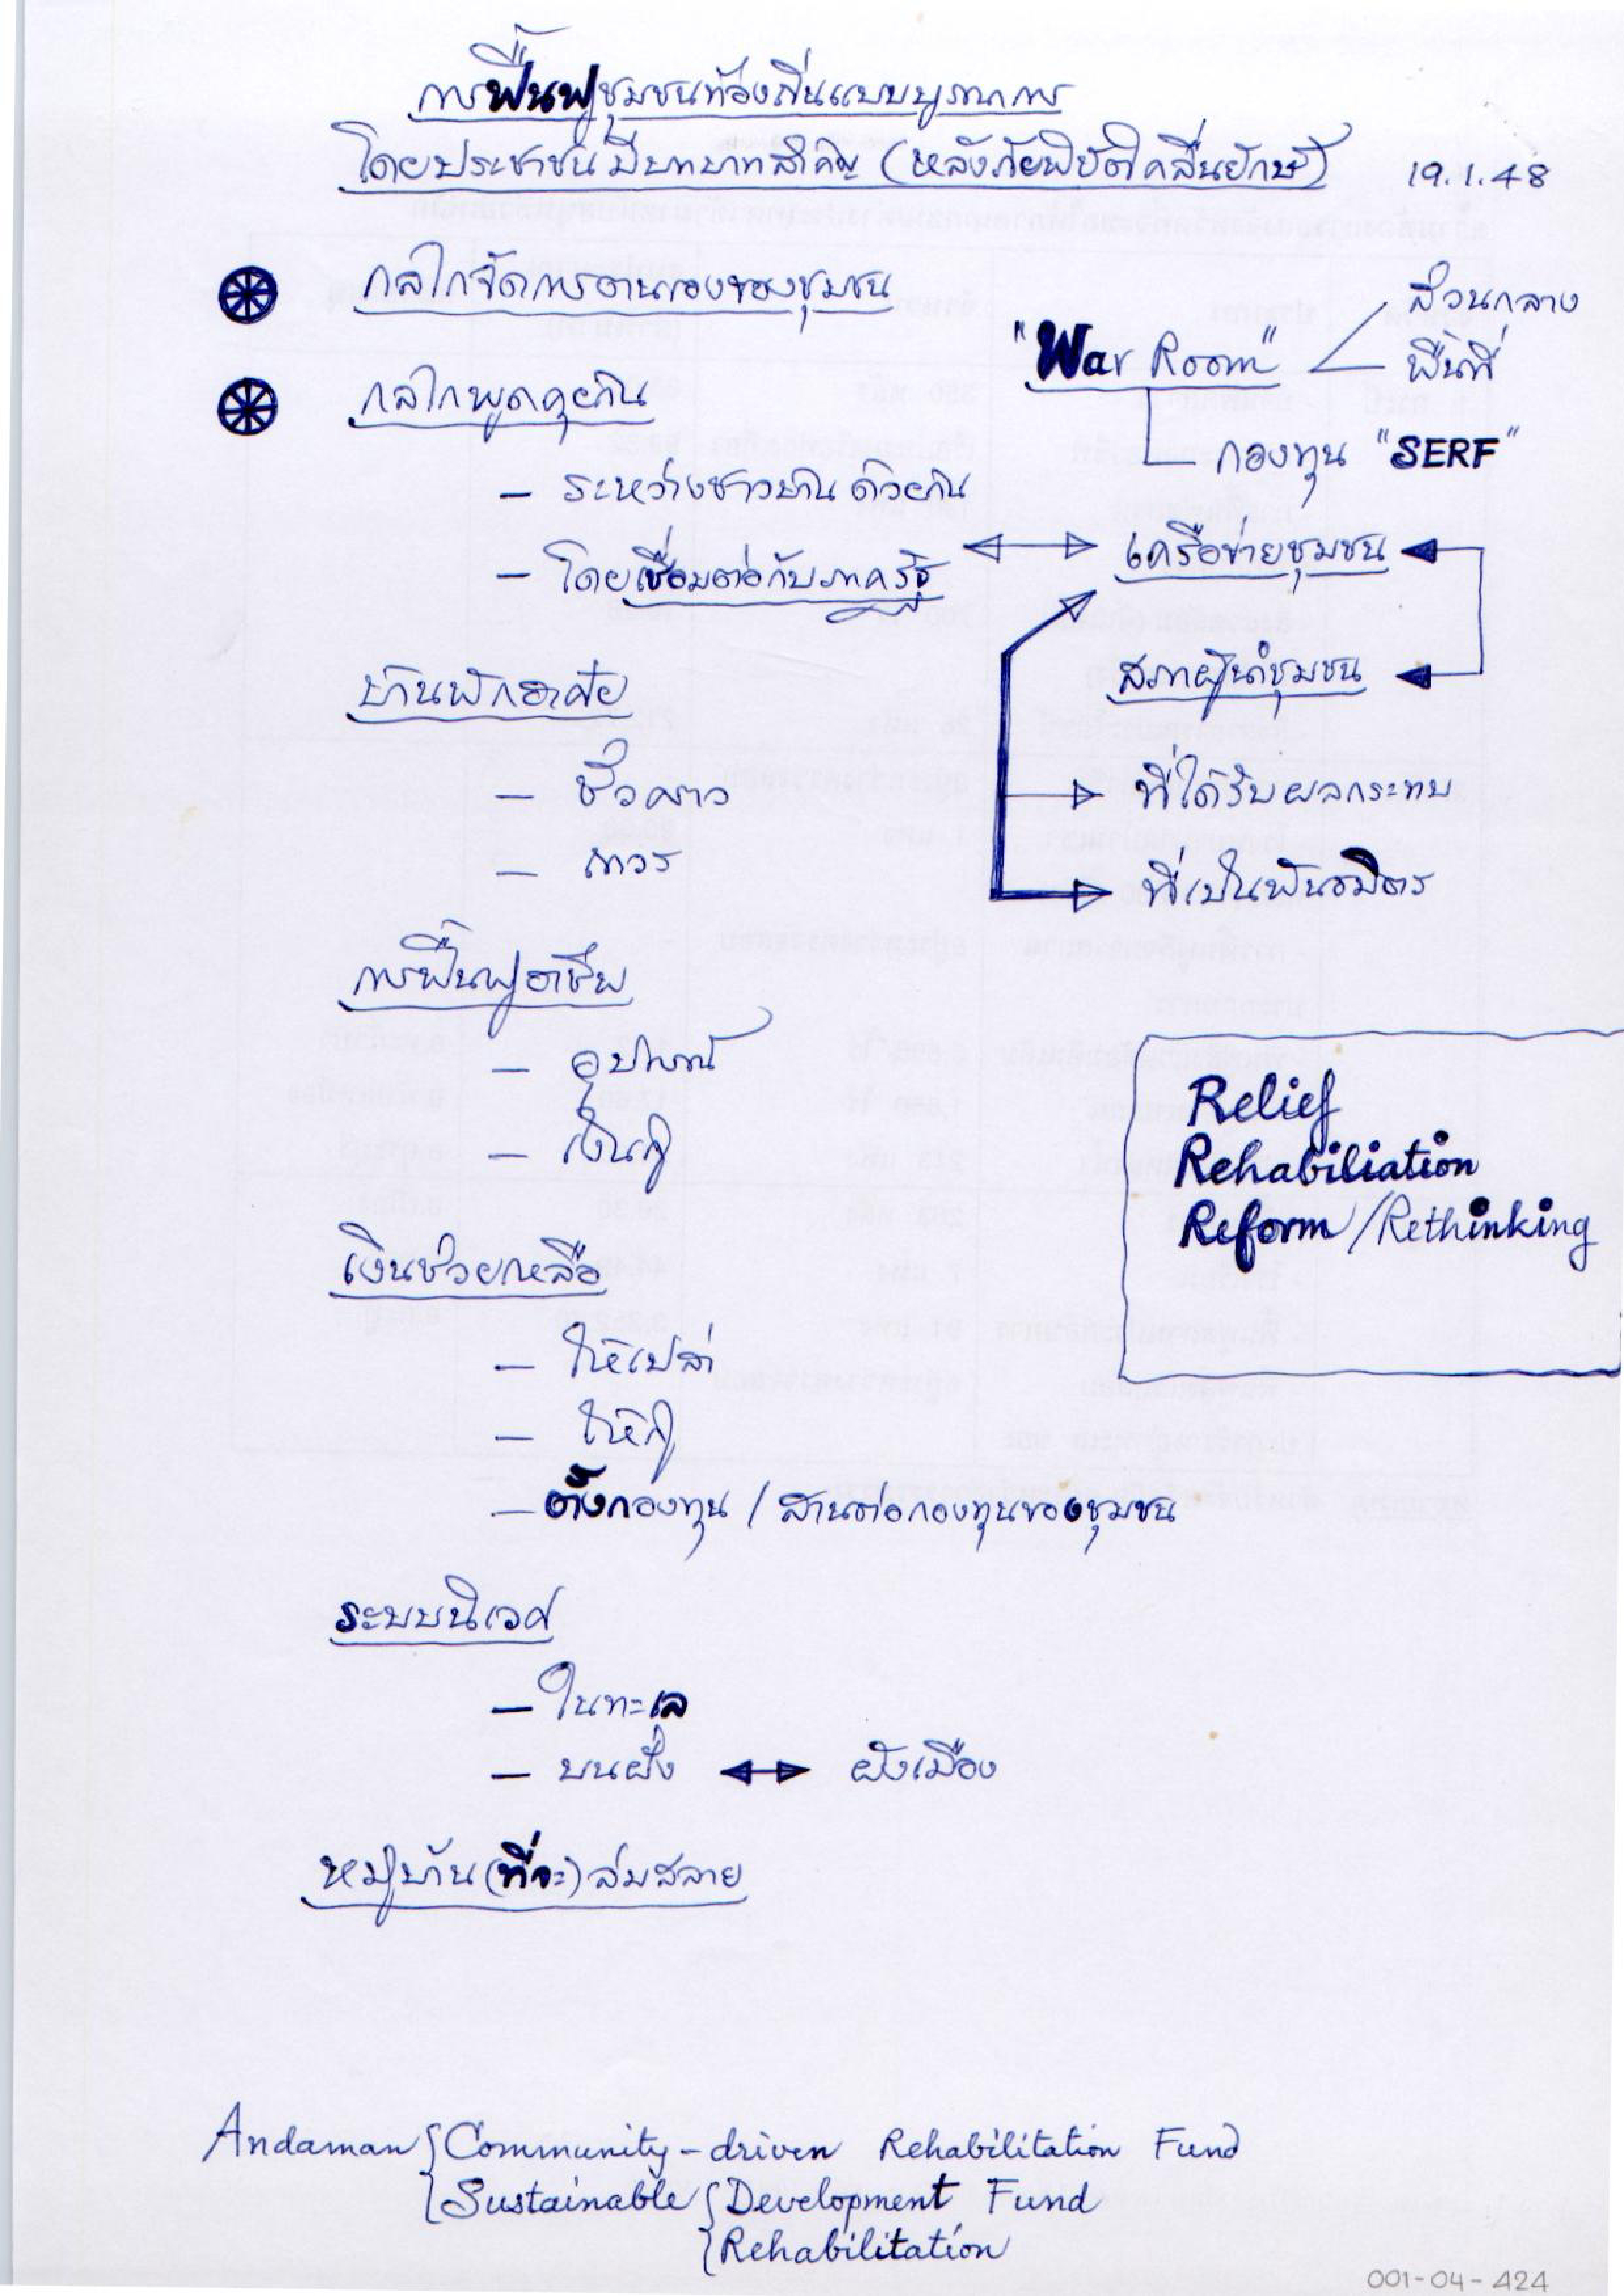 การฟื้นฟูชุมชนท้องถิ่นแบบบูรณาการ
โดยประชาชนมีบทบาทสำคัญ (หลังภัยพิบัติคลื่นยักษ์) 19.1.48
กลไกจัดการตนเองของชุมชน
"War Room"
ส่วนกลาง
พื้นที่
กองทุน "SERF"
กลไกพูดคุยกัน
- ระหว่างชาวบ้านด้วยกัน
- โดยเชื่อมต่อกับภาครัฐ
เครือข่ายชุมชน
สภาผู้นำชุมชน
ที่ได้รับผลกระทบ
ที่เป็นพันธมิตร
บ้านพักอาศัย
- ชั่วคราว
- ถาวร
การฟื้นฟูอาชีพ
- อุปกรณ์
- เงินกู้
Relief
Rehabiliation
Reform/Rethinking
เงินช่วยเหลือ
- ให้เปล่า
- ให้กู้
- ตั้งกองทุน / สานต่อกองทุนของชุมชน
ระบบนิเวศ
- ในทะเล
- บนฝั่ง ผังเมือง
หมู่บ้าน(ที่จะ)ล่มสลาย
Andaman Community-driven Rehabilitation Fund
Sustainable Development Fund
Rehabilitation
001-04-424